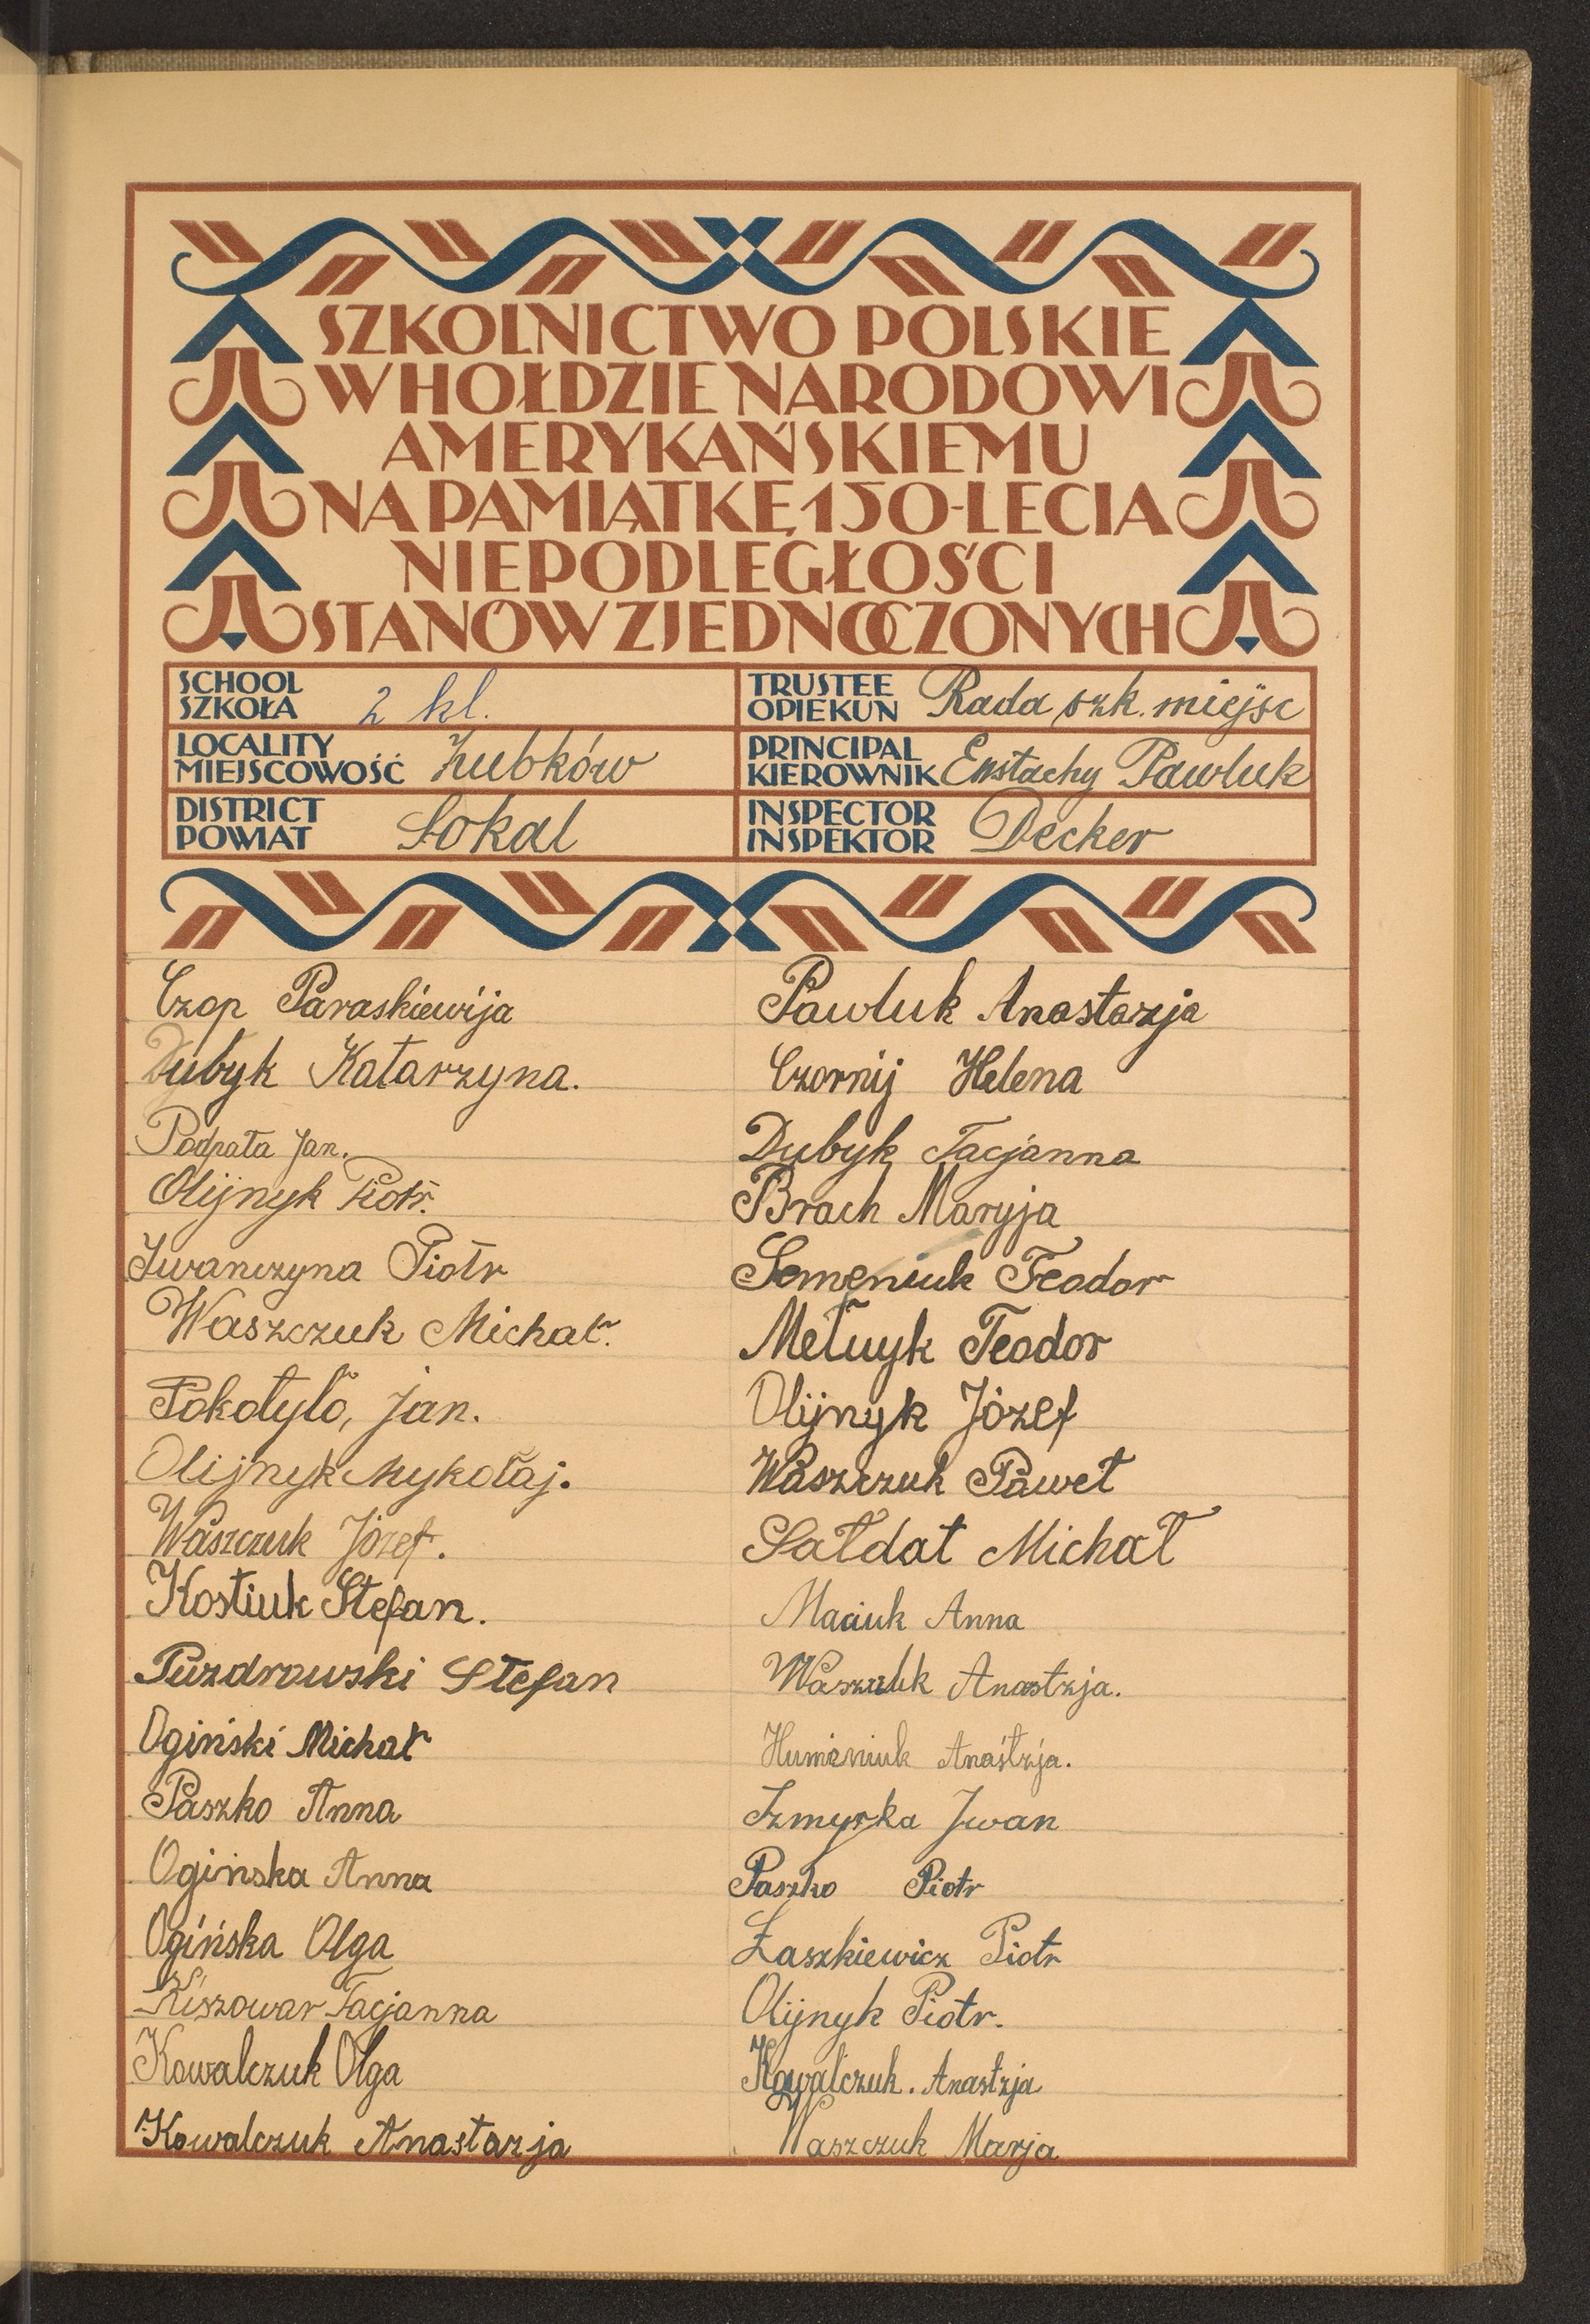 SZKOLNICTWO POLSKIE
W HOŁDZIE NARODOWI
AMERYKAŃSKIEMU
NA PAMIĄTKĘ 150-LECIA
NIEPODLEGŁOŚCI
STANÓW ZJEDNOCZONYCH
SCHOOL
SZKOŁA 2 kl.
TRUSTEE
OPIEKUN Rada szk. miejsc
LOCALITY
MIEJSCOWOŚĆ Zubków
PRINCIPAL
KIEROWNIK Eustachy Pawluk
DISTRICT
POWIAT Sokal
INSPECTOR
INSPEKTOR Decker
Czop Paraskiewija
Dubyk Katarzyna.
Podpała Jan.
Olijnyk Piotr.
Iwanczyna Piotr
Waszczuk Michał.
Pokotyło, Jan.
Olijnyk Mykołaj.
Waszczuk Józef.
Kostiuk Stefan.
Puzdrowski Stefan
Ogiński Michał
Paszko Anna
Ogińska Anna
Ogińska Olga
Kiszowar Tacjanna
Kowalczuk Olga
Kowalczuk Anastazja
Pawluk Anastazja
Czornij Helena
Dubyk Tacjanna
Brach Maryja
Semeniuk Teodor
Teodor
Olijnyk Józef
Waszczuk Paweł
Sałdat Michał
Maciuk Anna
Anastzja.
Humeniuk Anastzja.
Iwan
Paszko Piotr
Łaszkiewicz Piotr
Olijnyk Piotr.
Kowalczuk. Anastzja
Waszczuk Marja